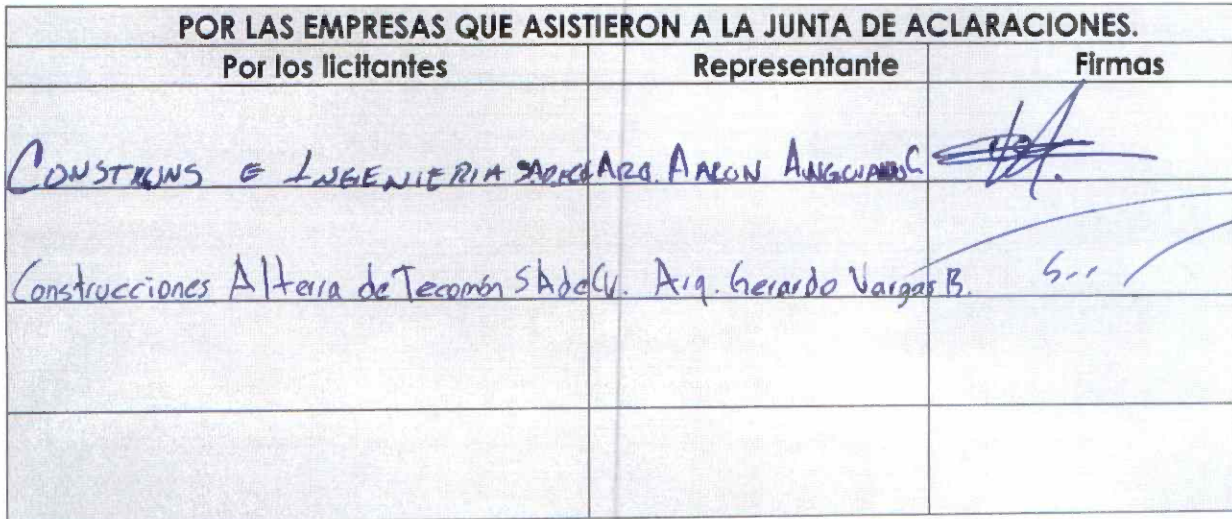 POR LAS EMPRESAS QUE ASISTIERON A LA JUNTA DE ACLARACIONES.
Por los licitantes Representante Firmas
CONSTRUNS E INGENIERIA SADECV ARQ. AARON ANGUIANO C.
Construcciones Alterra de Tecomán SA de CV. Arq. Gerardo Vargas B.